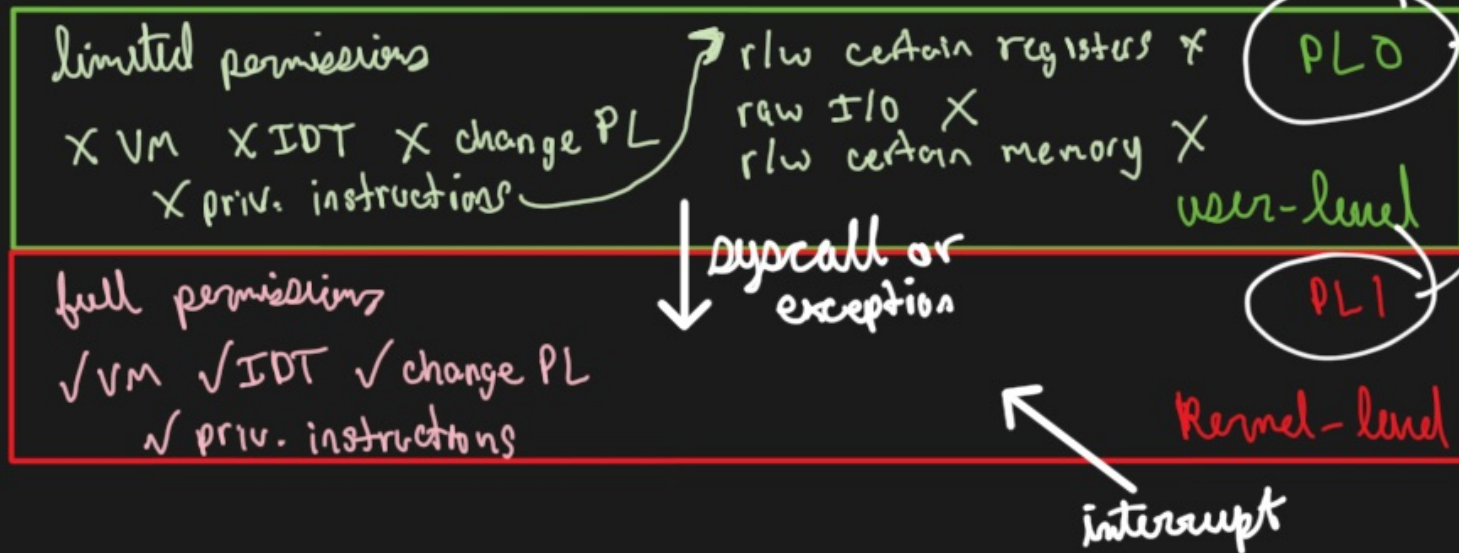 limited permissions
X VM X IDT X change PL
X priv. instructions
r/w certain registers X
raw I/O X
r/w certain memory X
PL0
user-level
syscall or
exception
full permissions
✓ VM ✓ IDT ✓ change PL
✓ priv. instructions
PL1
Kernel-level
interrupt